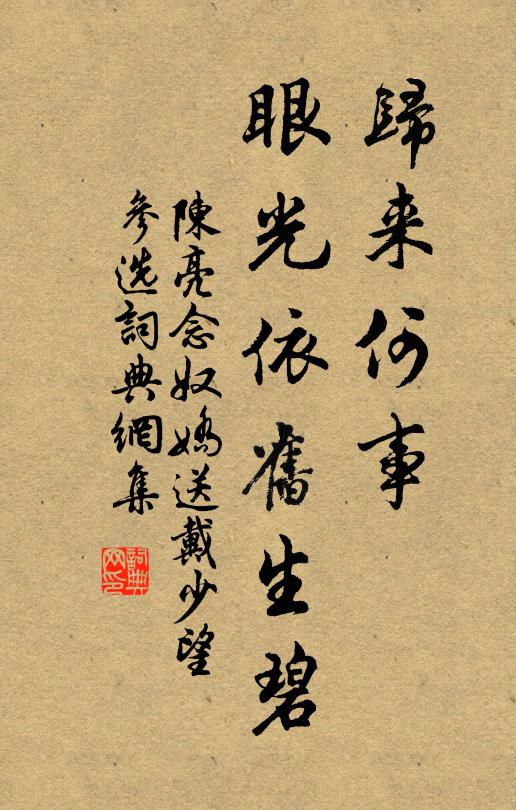 歸来何事
眼光依舊生碧
陳亮念奴嬌送戴少望
參选詞典網集
詞典
网印